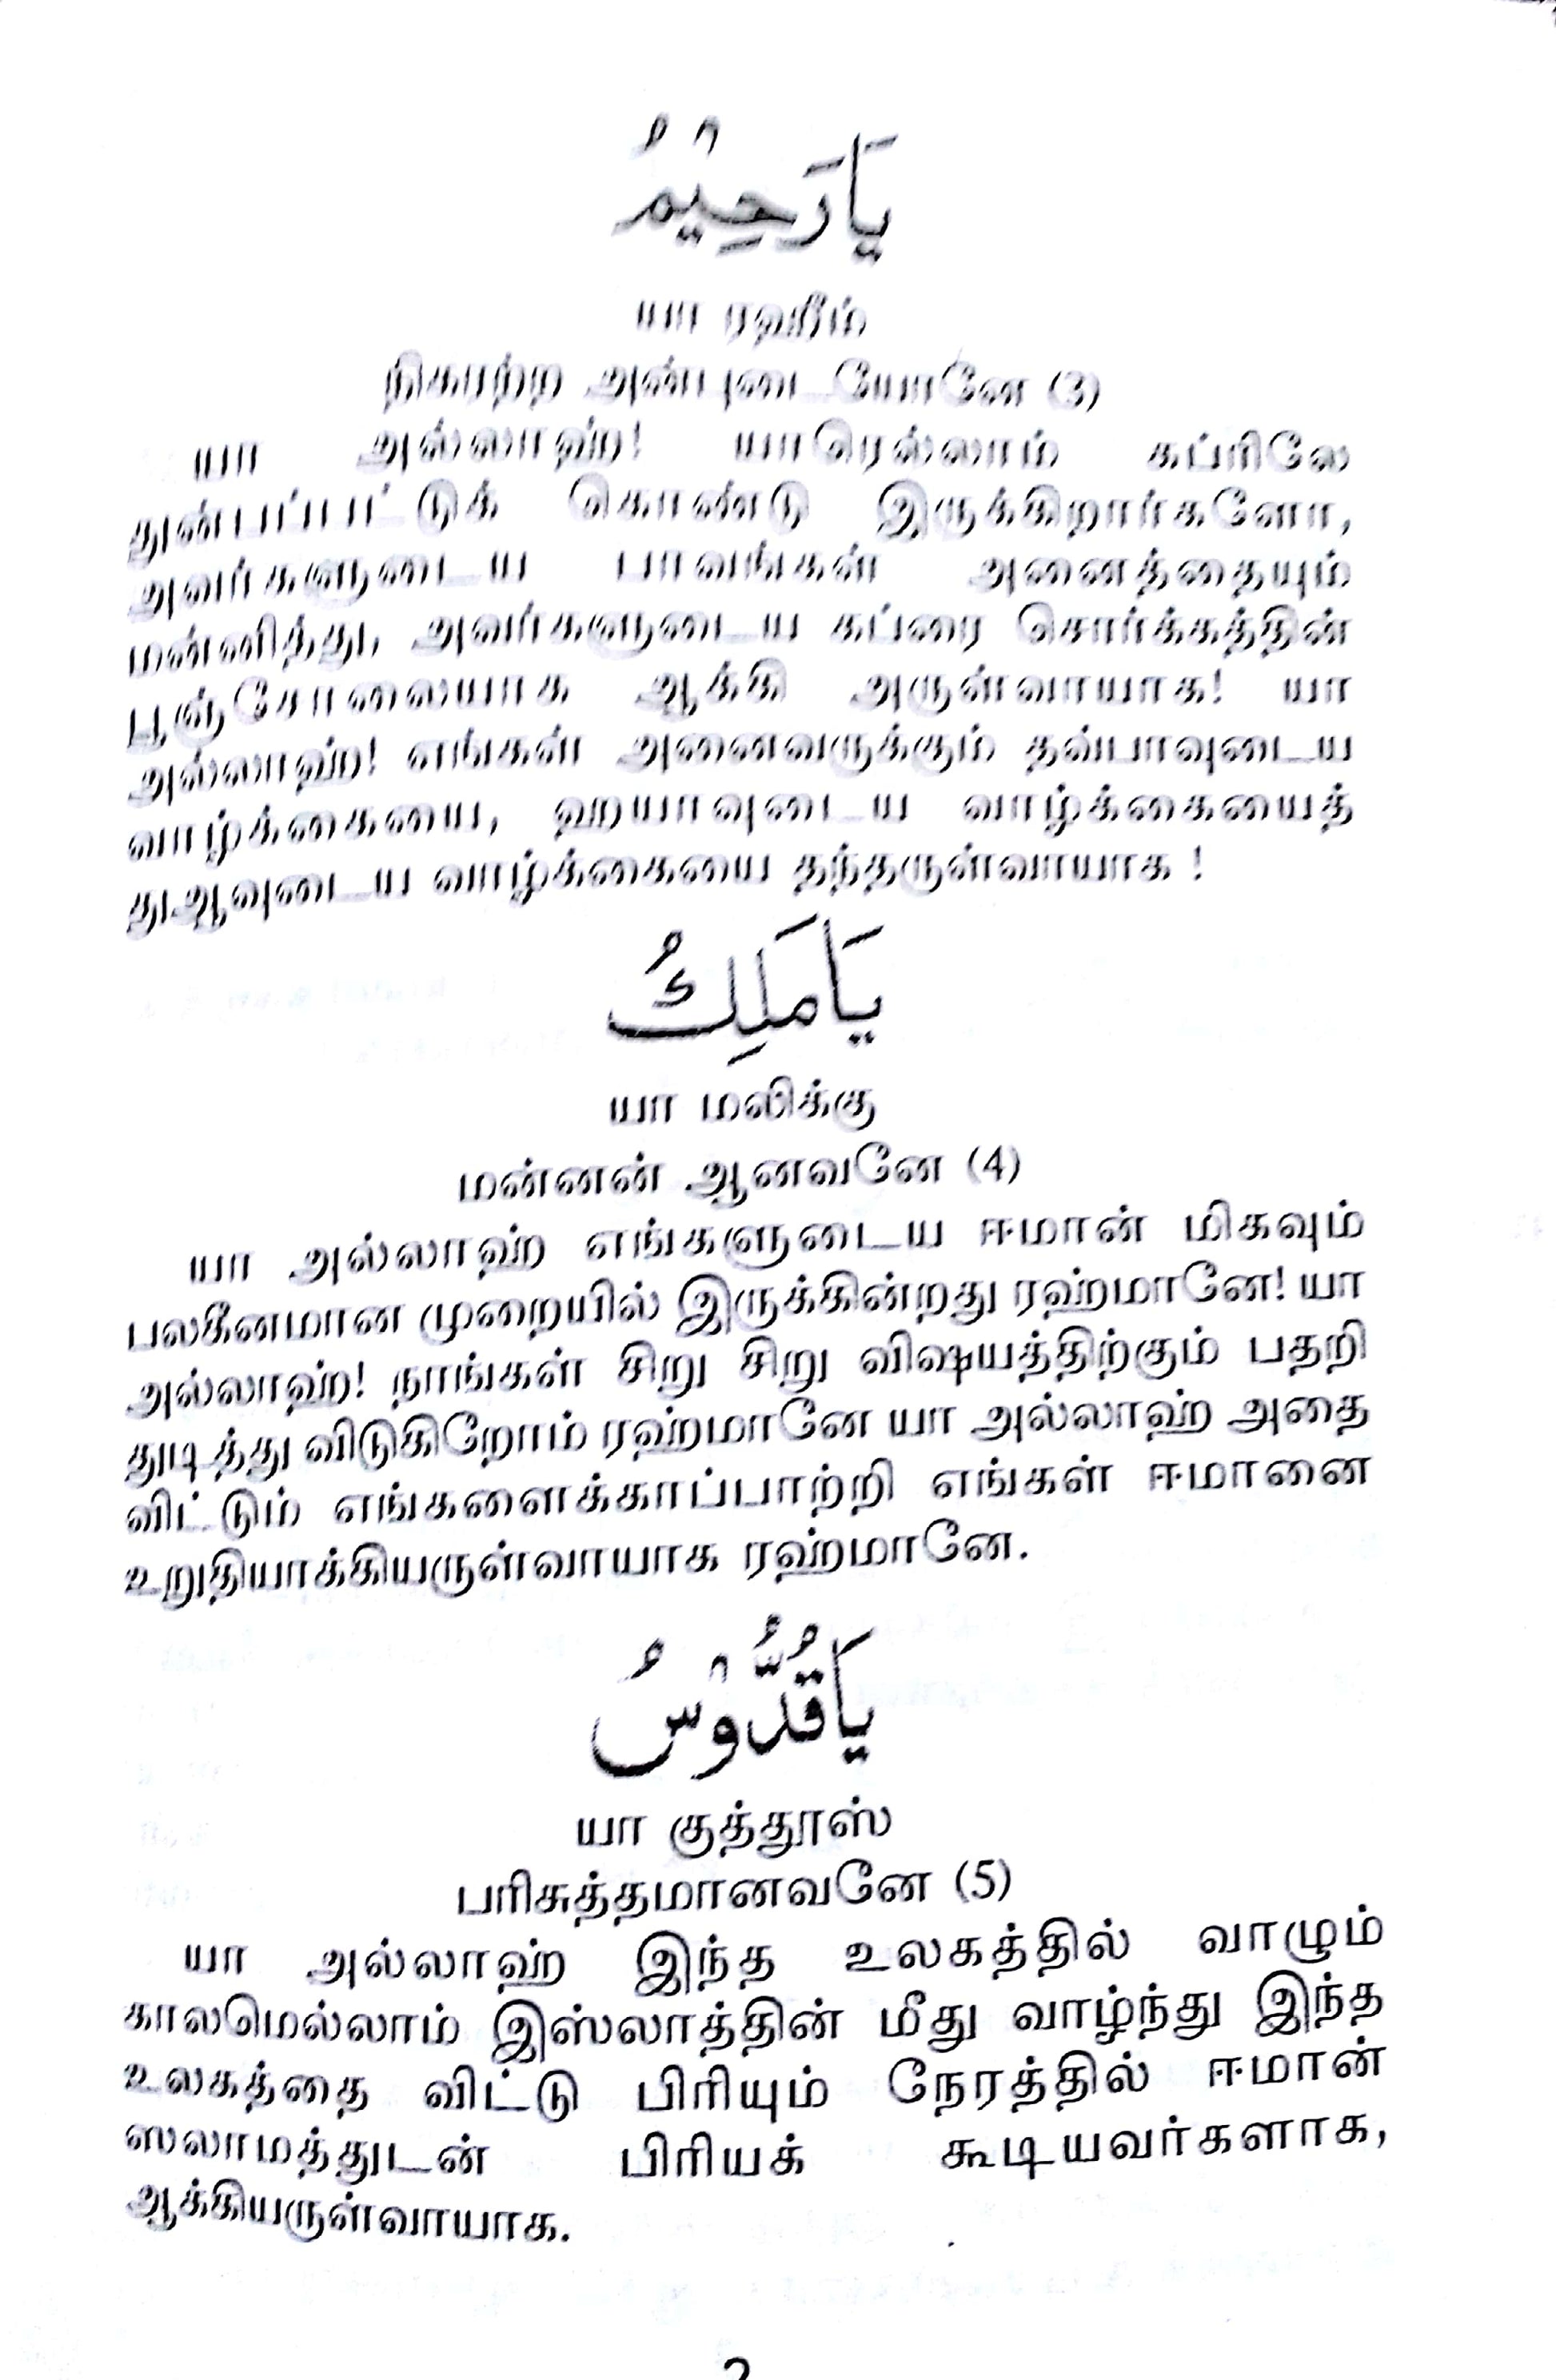 يَا رَحِيْمُ
யா ரஹீம்
நிகரற்ற அன்புடையோனே (3)
யா அல்லாஹ்! யாரெல்லாம் கப்ரிலே
துன்பப்பட்டுக் கொண்டு இருக்கிறார்களோ,
அவர்களுடைய பாவங்கள் அனைத்தையும்
மன்னித்து, அவர்களுடைய கப்ரை சொர்க்கத்தின்
பூஞ்சோலையாக ஆக்கி அருள்வாயாக! யா
அல்லாஹ்! எங்கள் அனைவருக்கும் தவ்பாவுடைய
வாழ்க்கையை, ஹயாவுடைய வாழ்க்கையைத்
துஆவுடைய வாழ்க்கையை தந்தருள்வாயாக !
يَا مَلِكُ
யா மலிக்கு
மன்னன் ஆனவனே (4)
யா அல்லாஹ் எங்களுடைய ஈமான் மிகவும்
பலகீனமான முறையில் இருக்கின்றது ரஹ்மானே! யா
அல்லாஹ்! நாங்கள் சிறு சிறு விஷயத்திற்கும் பதறி
துடித்து விடுகிறோம் ரஹ்மானே யா அல்லாஹ் அதை
விட்டும் எங்களைக்காப்பாற்றி எங்கள் ஈமானை
உறுதியாக்கியருள்வாயாக ரஹ்மானே.
يَا قُدُّوْسُ
யா குத்தூஸ்
பரிசுத்தமானவனே (5)
யா அல்லாஹ் இந்த உலகத்தில் வாழும்
காலமெல்லாம் இஸ்லாத்தின் மீது வாழ்ந்து இந்த
உலகத்தை விட்டு பிரியும் நேரத்தில் ஈமான்
ஸலாமத்துடன் பிரியக் கூடியவர்களாக,
ஆக்கியருள்வாயாக.